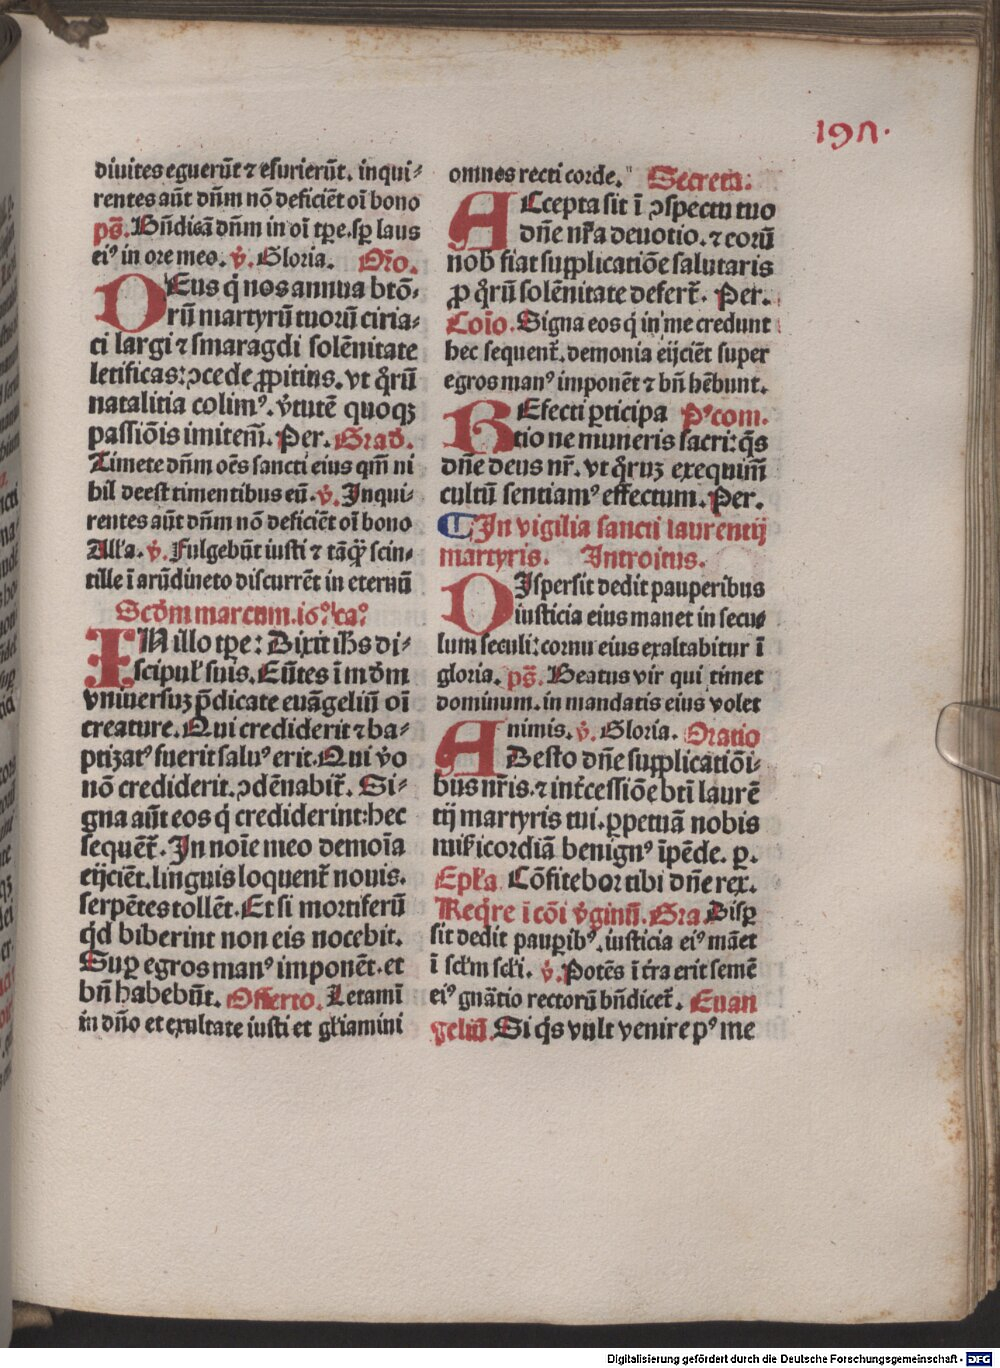 197.
diuites eguerūt ⁊ esurierūt. inqui⸗
rentes aūt dn̄m nō deficiēt oī bono
ps̄. Bn̄dicā dn̄m in oī tp̄e. sp̄ laus
eiꝰ in ore meo. v̄. Gloria. Or̄o.
DEus q̇ nos annua btō⸗
rū martyrū tuorū ciria⸗
ci largi ⁊ smaragdi solēnitate
letificas: ꝯcede ꝓpitius. vt q̄rū
natalitia colimꝰ. v̇tutē quoqꝫ
passiōis imitem̄. Per. Grad.
Timete dn̄m oēs sancti eius qm̄ ni
hil deest timentibus eū. v̄. Inqui⸗
rentes aūt dn̄m nō deficiēt oī bono
All'a. v̄. Fulgebūt iusti ⁊ tāq̄ꝫ scin⸗
tille ī arūdineto discurrēt in eternū
Scd̄m marcum. i6ꝰ. ca?
IN illo tp̄e: Dixit ih̄s di⸗
scipul' suis. Eūtes ī mūdm
vniuersuꝫ p̄dicate euāgeliū oī
creature. Qui crediderit ⁊ ba⸗
ptizatꝰ fuerit saluꝰ erit. Qui v̇o
nō crediderit. ꝯdēnabit̄. Si⸗
gna aūt eos q̇ crediderint: hec
sequēt̄. In noīe meo demoīa
eijciēt. linguis loquent̄ nouis.
serpētes tollēt. Et si mortiferū
q̇d biberint non eis nocebit.
Suꝑ egros manꝰ imponēt. et
bn̄ habebūt. Offerto. Letamī
in dn̄o et exultate iusti et gl'iamini
omnes recti corde. Secreta.
ACcepta sit ī ꝯspectu tuo
dn̄e nr̄a deuotio. ⁊ eorū
nob fiat supplicatiōe salutaris
ꝓ q̄rū solēnitate defert̄. Per.
Coīo. Signa eos q̇ in me credunt
hec sequent̄. demonia eijciēt super
egros manꝰ imponēt ⁊ bn̄ hēbunt.
REfecti ꝑticipa Pꝰcom.
tione muneris sacri: q̄s
dn̄e deus nr̄. vt q̄ruꝫ exequim̄
cultū sentiamꝰ effectum. Per.
¶ In vigilia sancti laurentij
martyris. Introitus.
DIspersit dedit pauperibus
iusticia eius manet in secu⸗
lum seculi: cornu eius exaltabitur ī
gloria. ps̄. Beatus vir qui timet
dominum. in mandatis eius volet
nimis. v̄. Gloria. Oratio
ADesto dn̄e supplicatiōi⸗
bus nr̄is. ⁊ int̄cessiōe btī laurē
tij martyris tui. ꝑpetuā nobis
mīs̄icordiā benignꝰ īpēde. ꝑ.
Epl'a Cōfitebor tibi dn̄e rex.
Req̄re ī cōi v̇ginū. Gra. Disꝑ
sit dedit pauꝑibꝰ. iusticia eiꝰ māet
ī scl'm scl'i. v̄. Potēs ī tr̄a erit semē
eiꝰ gnātio rectorū bn̄dicet̄. Euan
geliū. Si q̇s vult venire pꝰ me
Digitalisierung gefördert durch die Deutsche Forschungsgemeinschaft - DFG